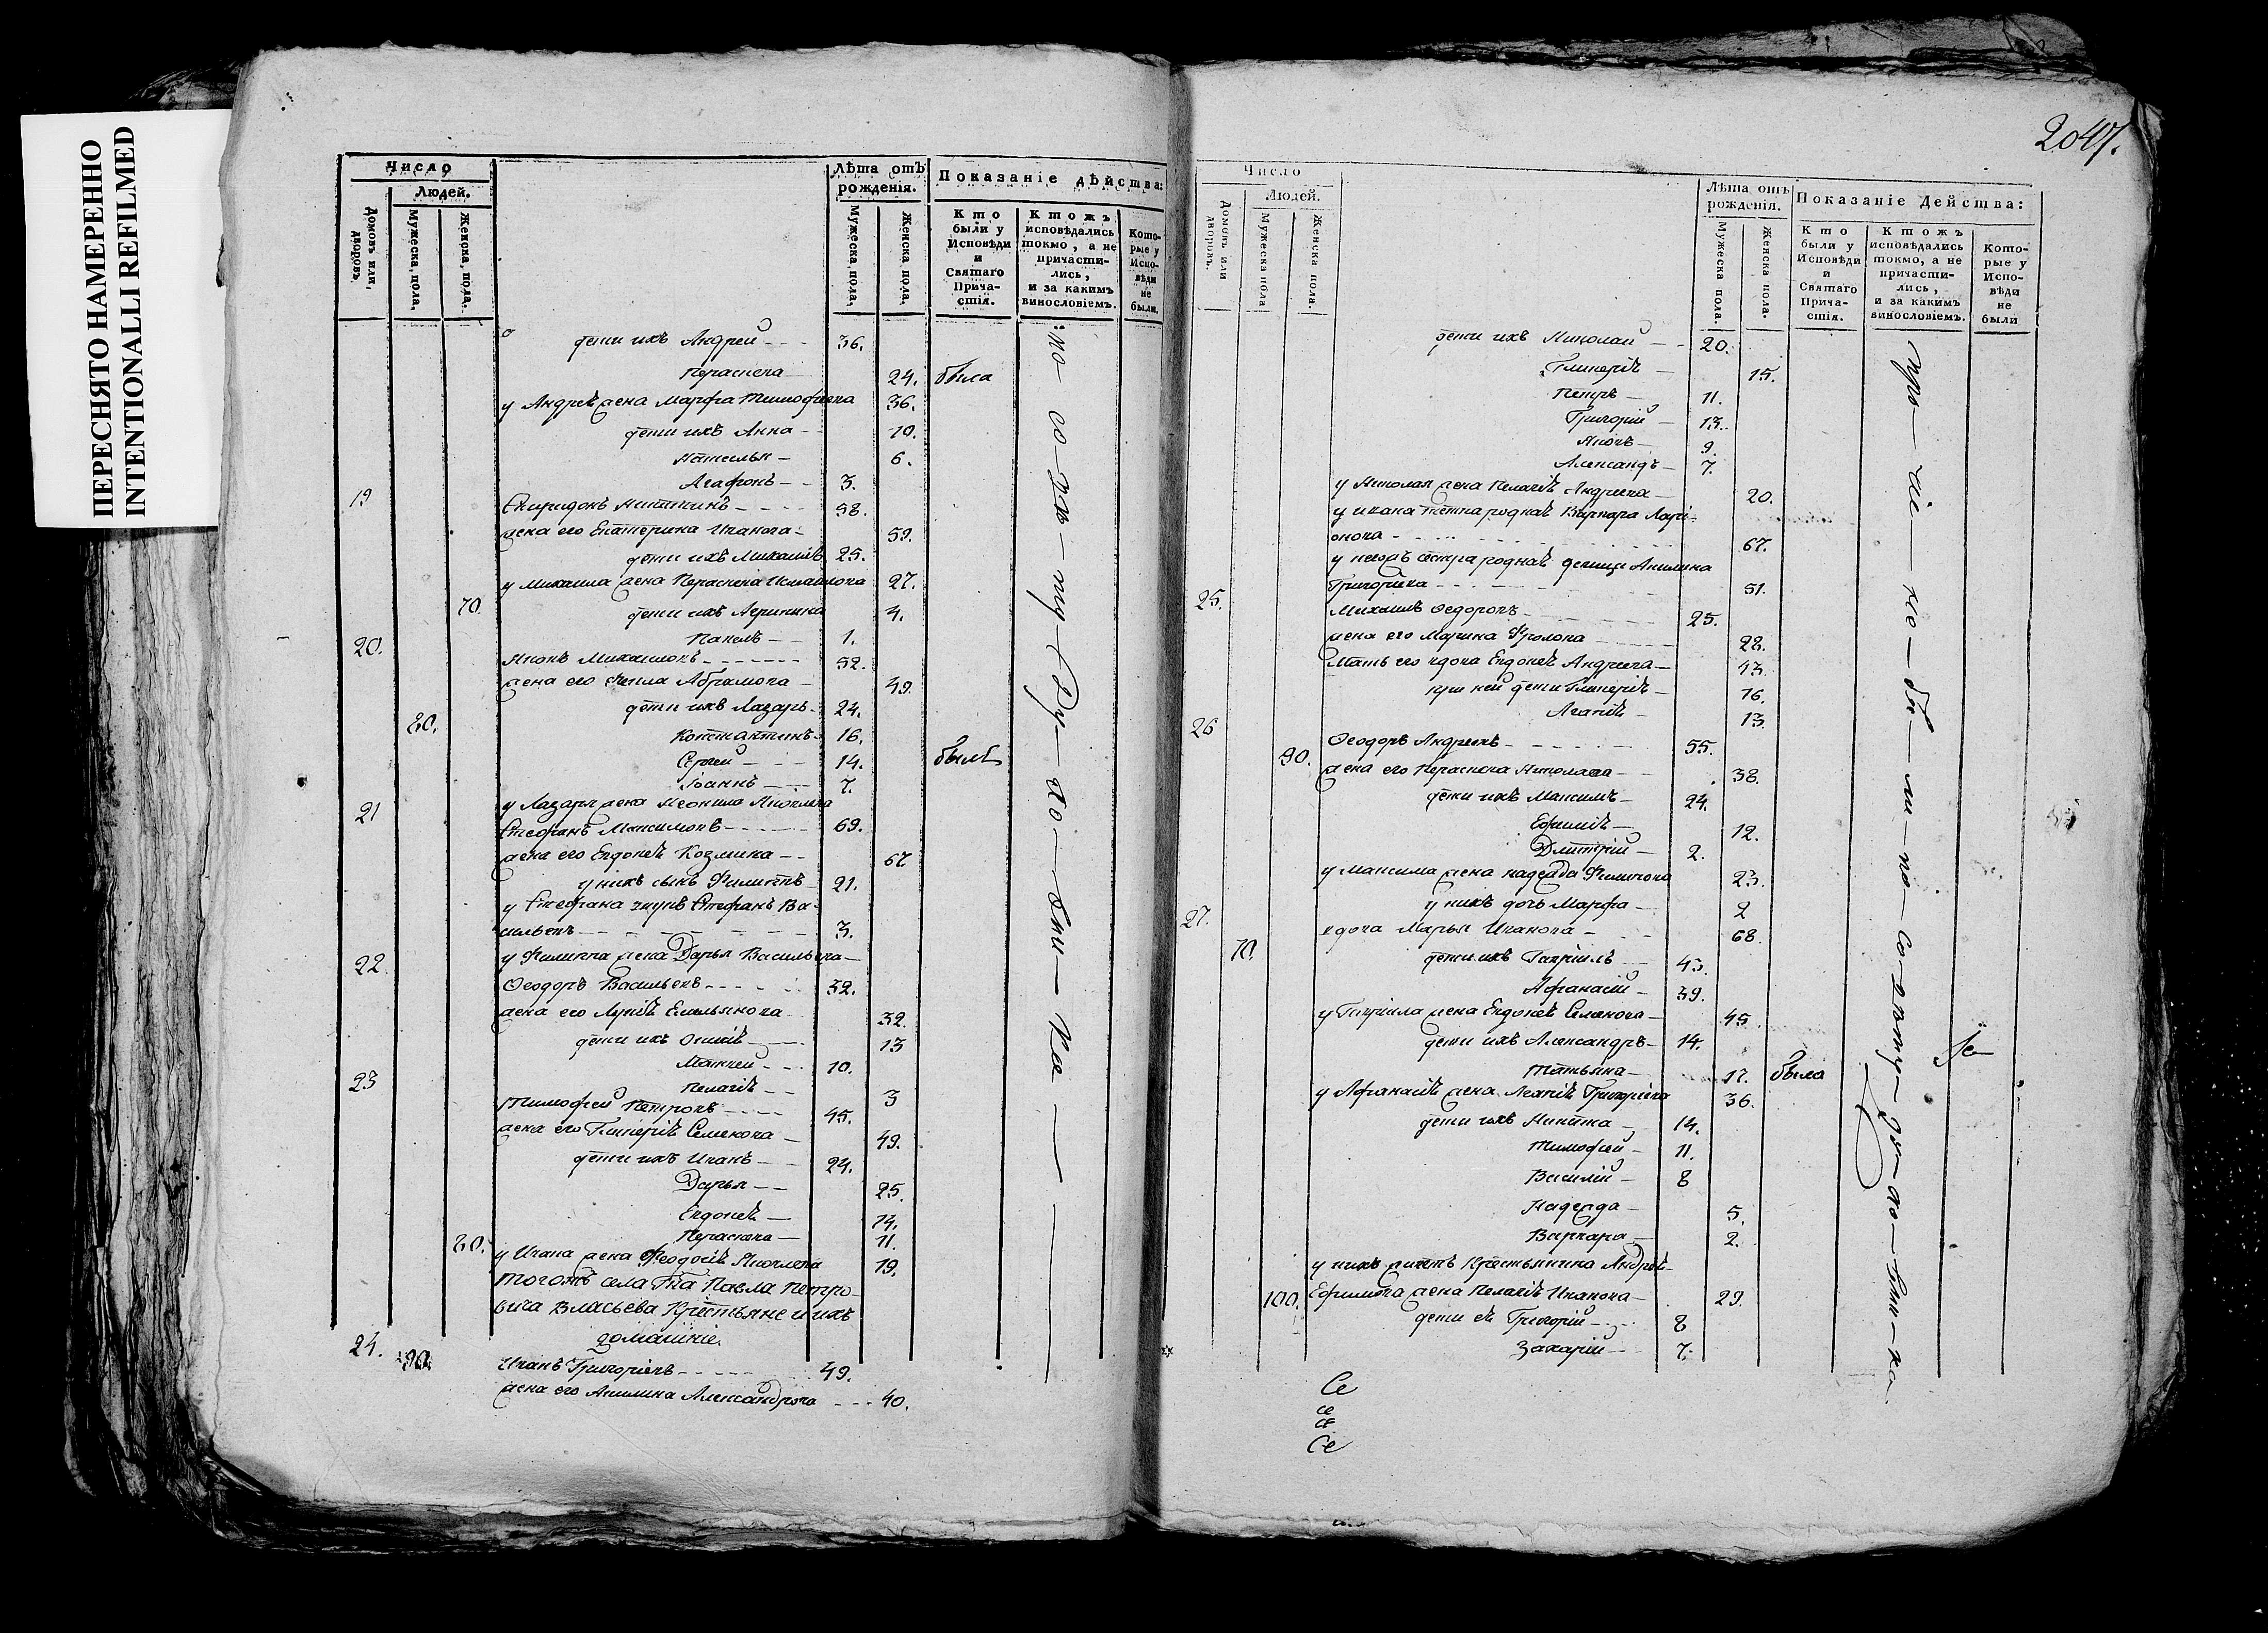 ПЕРЕСНЯТО НАМЕРЕННО
INTENTIONALLI REFILMED
Число
Людей.
Домовъ или, дворовъ.
Мужеска, пола.
Женска, пола.
Лѣта отъ рожденія.
Мужеска, пола.
Женска, пола.
Показаніе дѣйства:
Кто были у Исповѣди и Святаго Прича-стія.
Ктожъ исповѣдались токмо, а не причасти-лись, и за какимъ винословіемъ.
Кото-рые у Испо-вѣди не были.
дети ихъ Андрей 36.
Параскева 24. была
у Андрея жена Марфа Тимофеева 36.
дети ихъ Анна 10.
Наталья 6.
Агафонъ 3.
19 Спиридонъ Никитинъ 58.
жена его Екатерина Иванова 59.
дети ихъ Михаилъ 25.
у Михаила жена Параскева 27.
70. дети ихъ Агрипина 4.
Павелъ 1.
20. Яковъ Михаиловъ 52.
жена его Абрамова 49.
дети ихъ Лазарь 24.
80. Константинъ 16.
Сергей 14. былъ
Іоаннъ 7.
у Лазаря жена Неонила Яковлева
21 Стефанъ Максимовъ 69.
жена его Евдокея Козмина 67
у нихъ сынъ Филиппъ 21.
у Стефана внукъ Стефанъ Ва-
сильевъ 3.
у Филиппа жена Дарья Васильева
22. Феодоръ Васильевъ 32.
жена его Емельянова 32.
дети ихъ 13
Матвей 10.
Пелагія 3
23 Тимофей Петровъ 45.
жена его Гликерія Семенова 49.
дети ихъ Иванъ 24.
Дарья 25.
Евдокея 14.
Параскева 11.
80. у Ивана жена Феодосія Яковлева 19.
Тогожъ села Гна Павла Петро-
вича Власьева Крестьяне и ихъ
домашніе.
24. 90. Иванъ Григорьевъ 49.
жена его Акилина Александрова 40.
2047.
Число
Людей.
Домовъ или дворовъ.
Мужеска пола
Женска пола.
Лѣта отъ рожденія.
Мужеска пола.
Женска пола.
Показаніе Дейсшва:
Кто были у Исповѣди и Святаго Прича-стія.
Ктожъ исповѣдались токмо, а не причасти-лись, и за какимъ винословіемъ.
Кото-рые у Испо-вѣди не были
дети ихъ Николай 20.
Гликерія 15.
Петръ 11.
Григорій 13.
Яковъ 9.
Александръ 7.
у Николая жена Пелагія Андреева 20.
у Ивана тетка родная Варвара Лари-
онова 67.
у негожъ сестра родная девица Акилина
Григорьева 51.
25. Михаилъ Федоровъ 25.
жена его Марина Фролова 22.
Мать его вдова Евдокея Андреева 43.
при ней дети Гликерія 16.
Агапія 13.
26 Феодоръ Андреевъ 55.
90. жена его Параскева Николаева 38.
дети ихъ Максимъ 24.
Ефимія 12.
Дмитрій 2.
у Максима жена Надежда Филипова 23.
у нихъ дочь Марфа 2
27. вдова Марья Иванова 68.
70. дети ихъ Гавріилъ 43.
Афанасій 39.
у Гавріила жена Евдокея Семенова 45.
дети ихъ Александръ 14.
Татьяна 17. была
у Афанасія жена Агапія Григорьева 36.
дети ихъ Никита 14.
Тимофей 11.
Василій 8
Надежда 5.
Варвара 2.
у нихъ живетъ Крестьянина Андрей
100. Ефимова жена Пелагія Иванова 29.
дети ея Григорій 8
Захарій 7.
Се
се
се
Се